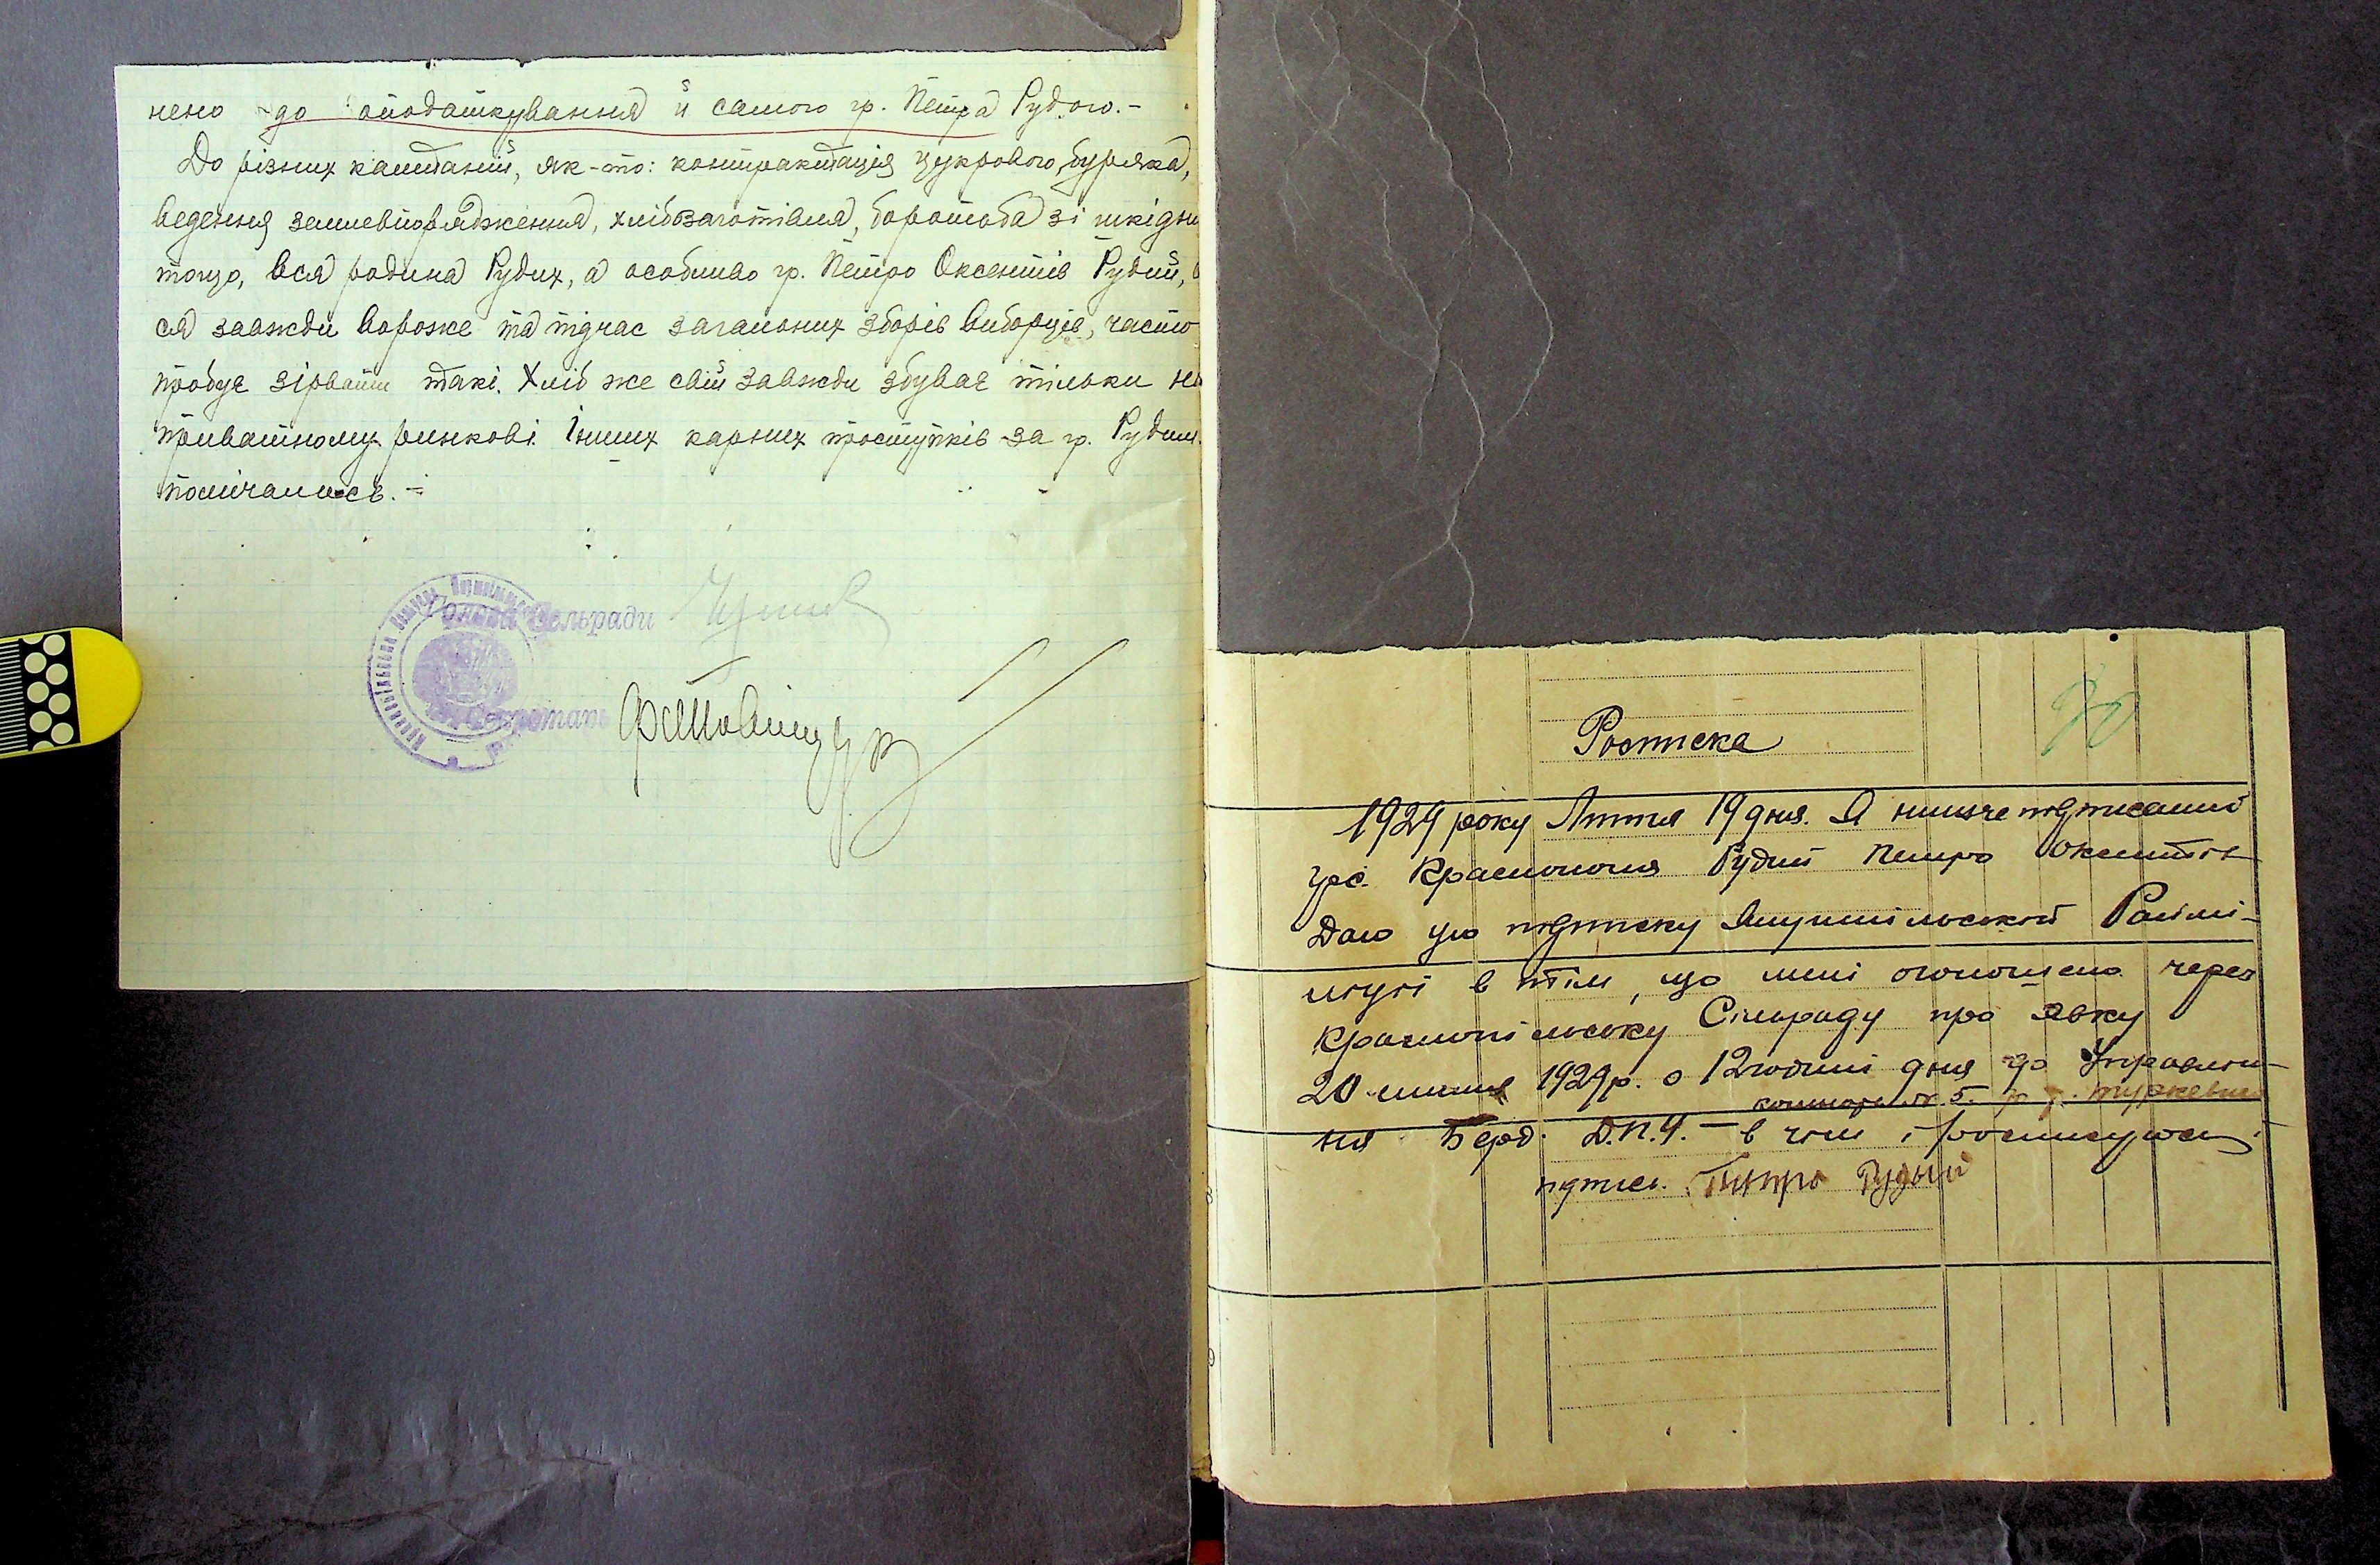 нено до оподаткування й самого гр. Петра Рудого.-
До різних кампаній, як-то: контрактація цукрового буряка,
ведення землевпорядження, хлібозаготівля, боротьба зі шкідни
тощо, вся родина Рудих, а особливо гр. Петро Оксентів Рудий,
ся завжди вороже та підчас загальних зборів виборців, часто
пробує зірвати такі. Хліб же свій завжди збуває тільки на
приватному ринкові. Інших карних проступків за гр. Рудим
помічалось.-
Голова Сельради
Секретарь
Росписка
1929 року Липня 19 дня. Я нижче підписаний
гр. с. Краснополя Рудий Петро Оксентів
Даю цю підписку Янушпільській Раймі-
ліції в тім, що мені оголошено через
Краснопільську Сільраду про явку
20 липня 1929 р. о 12 годині дня до Управлін-
ня Берд. Д.П.У. - в чім і росписуюсь
підпис. Петро Рудый